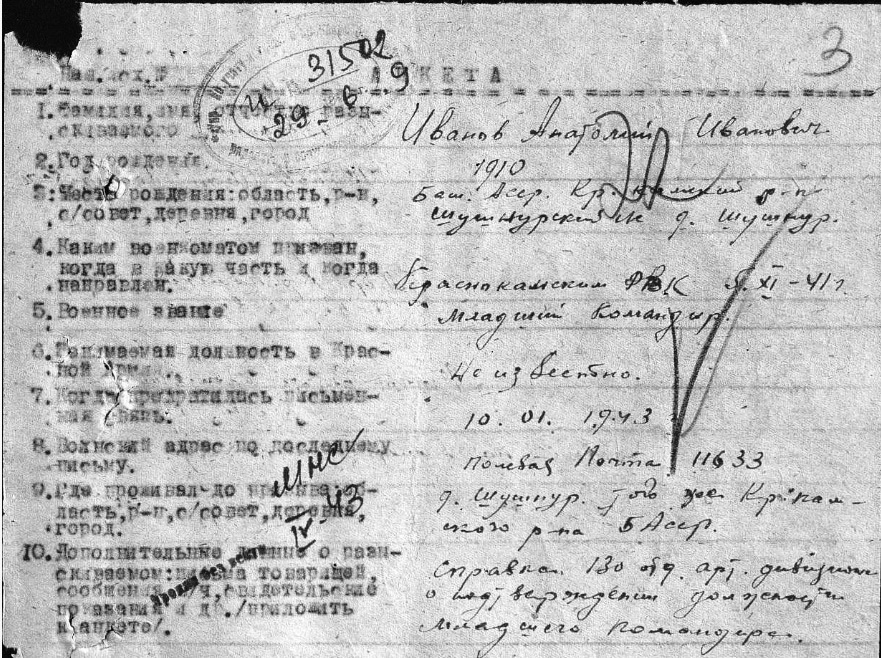 3
31502
29-6 9
Наш.исх.№ АНКЕТА
1. Фамилия, имя, отчество разы-
скиваемого
Иванов Анатолий Иванович
2. Год рождения.
1910
3. Место рождения:область,р-н,
с/совет,деревня,город
Баш. Асср. Кр. камский р-н
Шушнурский с д. Шушнур.
4. Каким военкоматом призван,
когда в какую часть и когда
направлен.
Краснокамским РВК XI-41 г.
5. Военное звание
Младший Командир.
6. Занимаемая должность в Крас-
ной Армии.
Не известно.
7. Когда прекратилась письмен-
ная связь.
10. 01. 1943
8. Воинский адрес по последнему
письму.
Полевая Почта 11633
9. Где проживал до призыва:об-
ласть,р-н,с/совет,деревня,
город.
д. Шушнур. того же Кр-кам-
ского р-на БАсср.
IV-43
10. Дополнительные данные о разы-
скиваемом:письма товарищей,
сообщения в/ч,свидетельские
показания и др./приложить
к анкете/.
Пропал без вести
Справка 130 отд. арт. дивизион
о подтверждении должности
младшего командира.